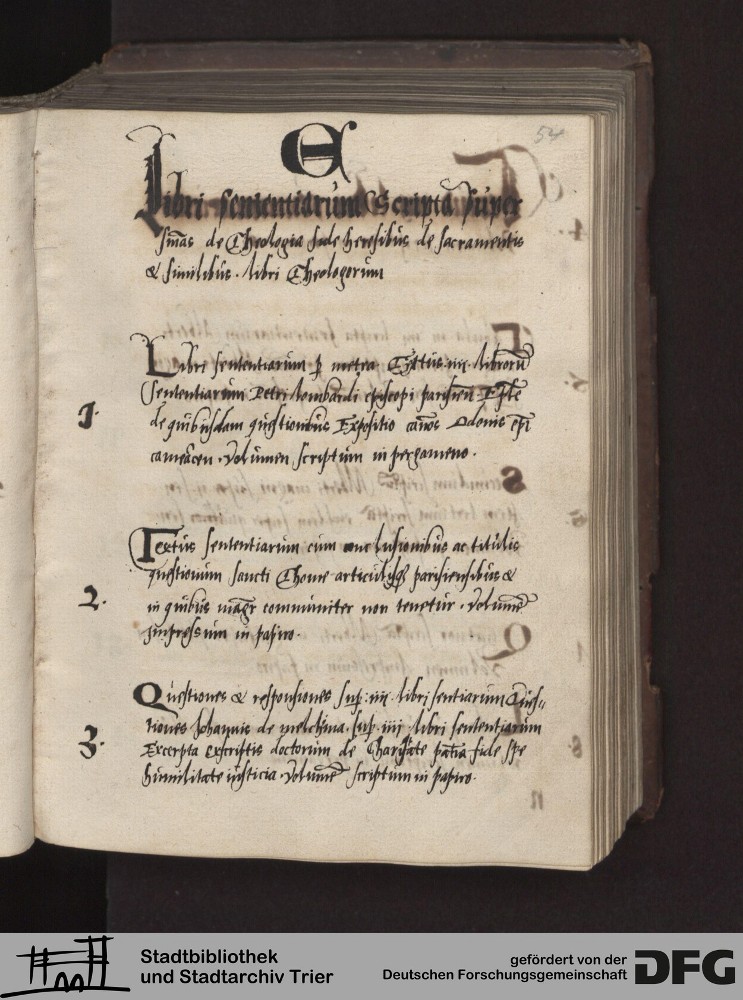 54
E
Libri sententiarum Scripta super
smãs de Theologia fide heresibus de sacramentis
& similibus. libri Theologorum
Libri sententiarum p metra Textus iiij librorũ
1. Sententiarum Petri lombardi episcopi parisien̄
de quibusdam questionibus Expositio Odonis ep̄i
cameracen. Volumen scriptum in pergameno.
Textus sententiarum cum conclusionibus ac titulis
questionum sancti Thome parisiensibus &
2. in quibus magr communiter non tenetur. Volumẽ
impressum in papiro.
Questiones & responsiones sup iiij libri sentiarum Ques-
3. tiones Johannis de mechlina sup iiij libri sententiarum
Excerpta doctorum de fide spe
humilitate iusticia. Volumẽ scriptum in papiro.
Stadtbibliothek
und Stadtarchiv Trier
gefördert von der
Deutschen Forschungsgemeinschaft
DFG